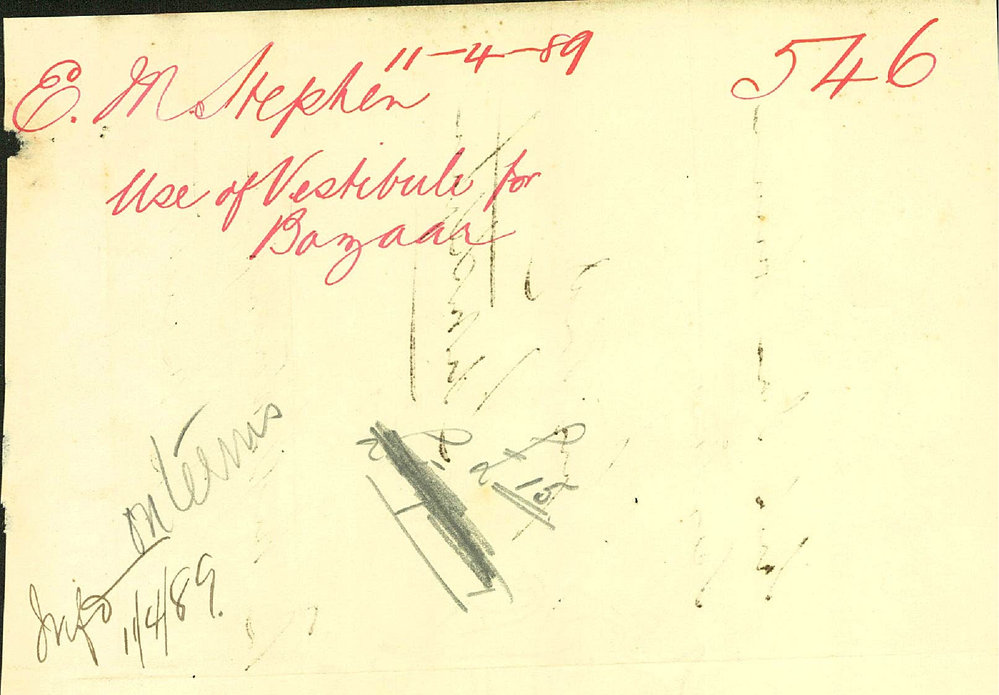 E. M. Stephen 11-4-89
546
Use of Vestibule for
Bazaar
on terms
Info
11/4/89.
15